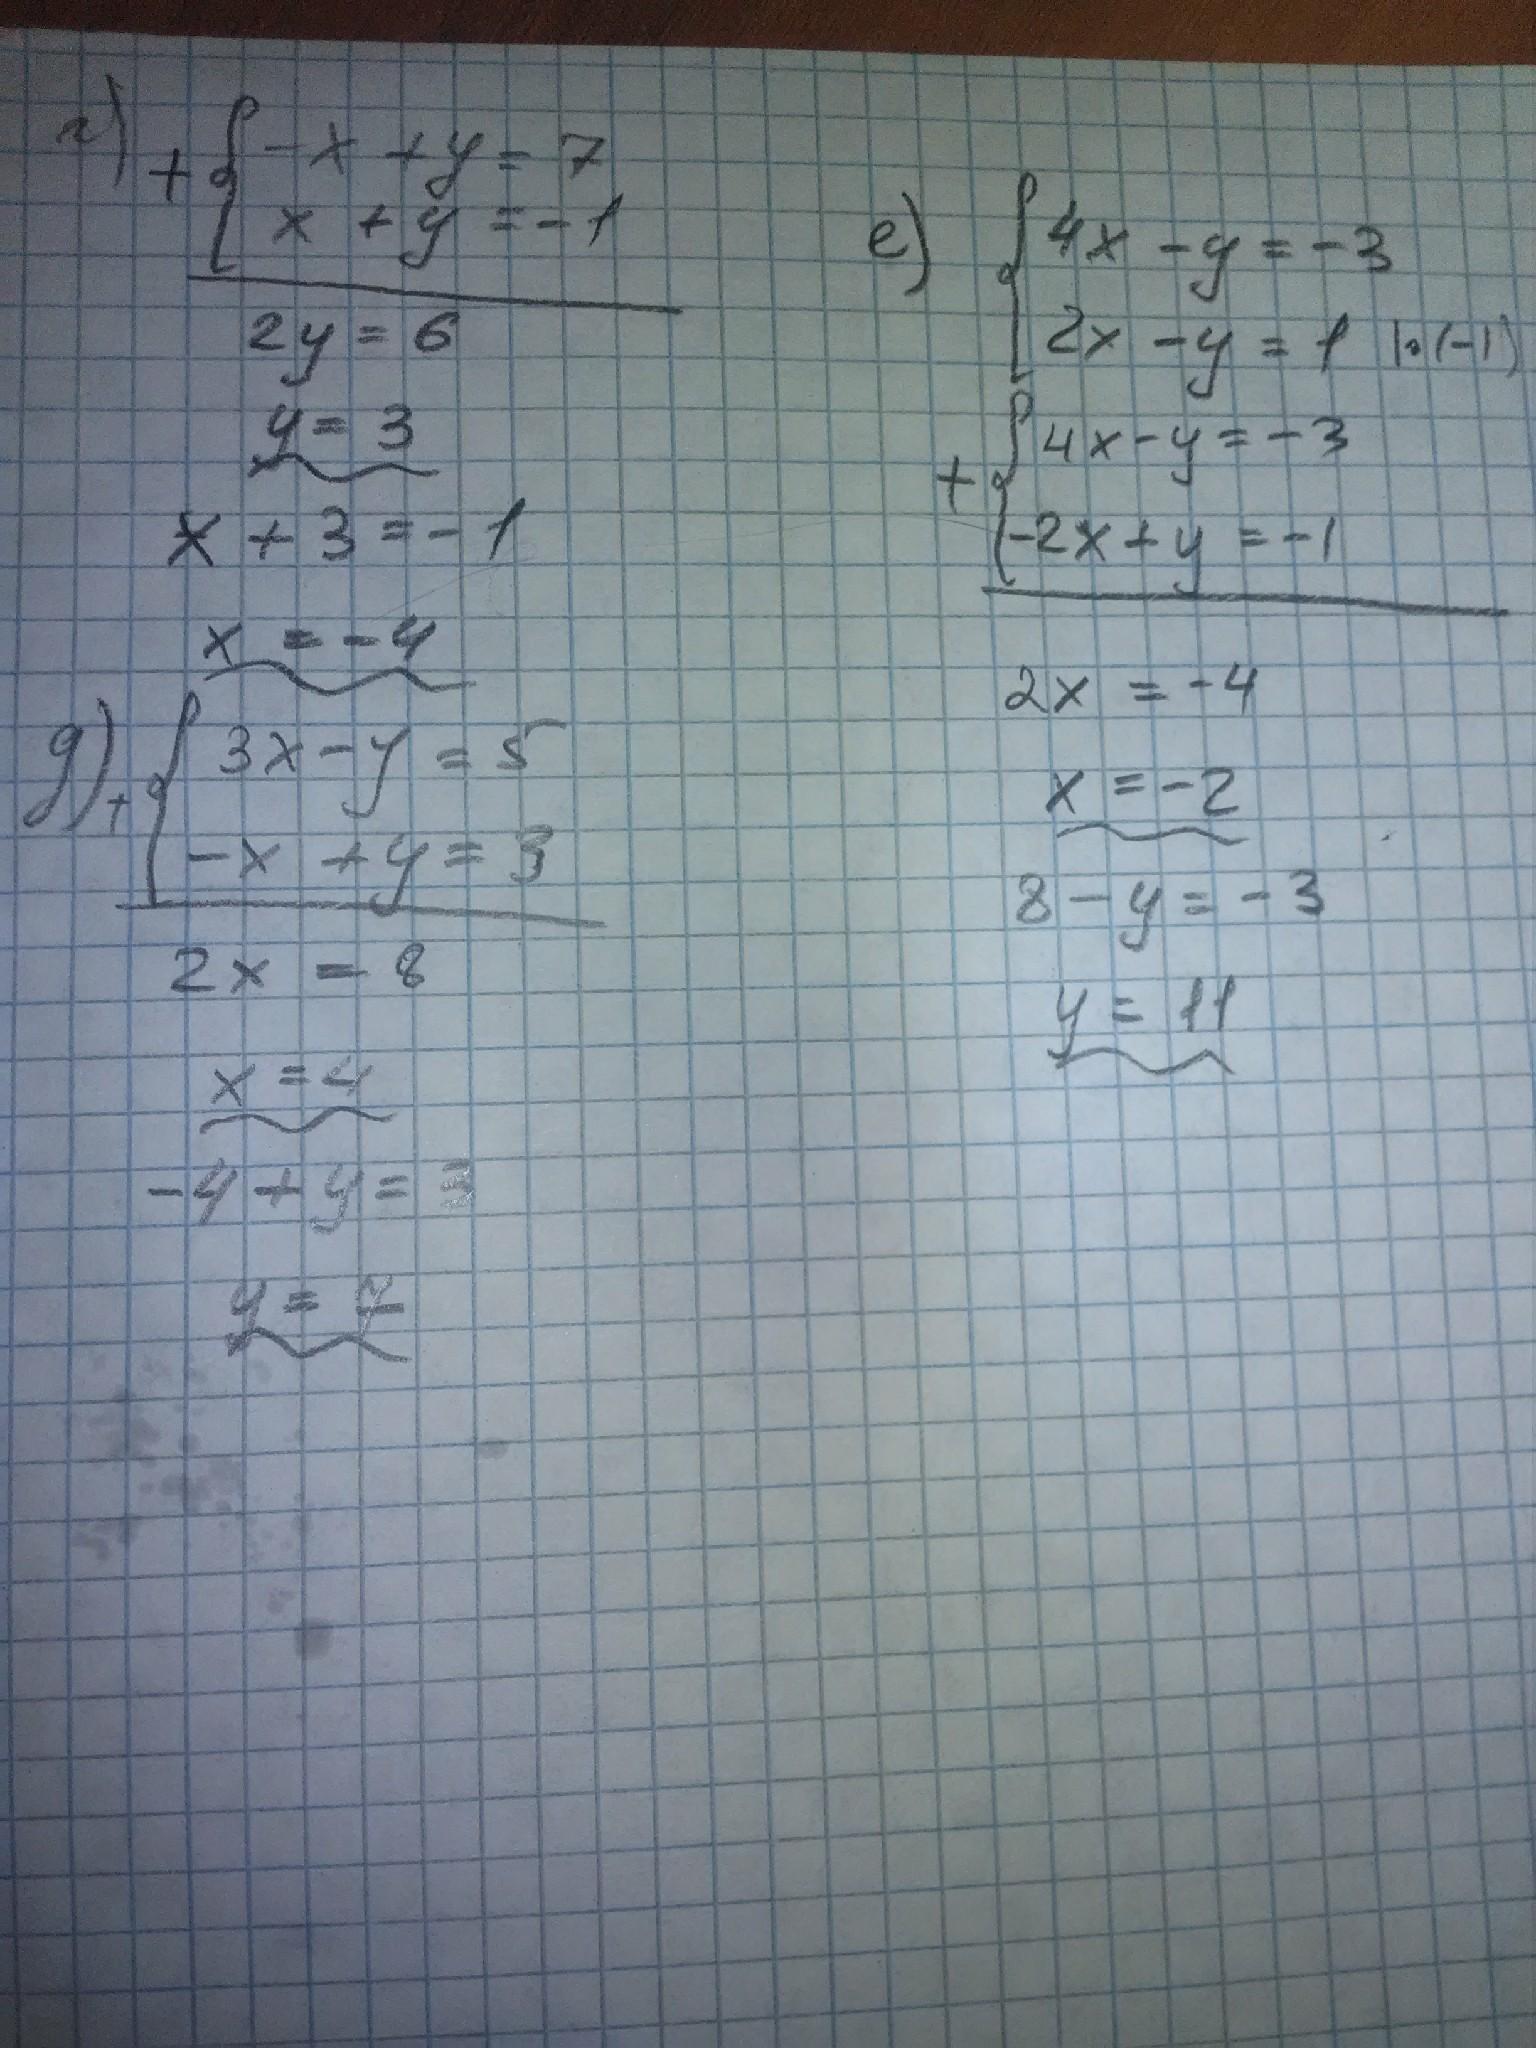 г) + { -x + y = 7
x + y = -1
2y = 6
y = 3
x + 3 = -1
x = -4
g) + { 3x - y = 5
-x + y = 3
2x = 8
x = 4
-4 + y = 3
y = 7
e) { 4x - y = -3
2x - y = 1 |·(-1)
+ { 4x - y = -3
-2x + y = -1
2x = -4
x = -2
8 - y = -3
y = 11